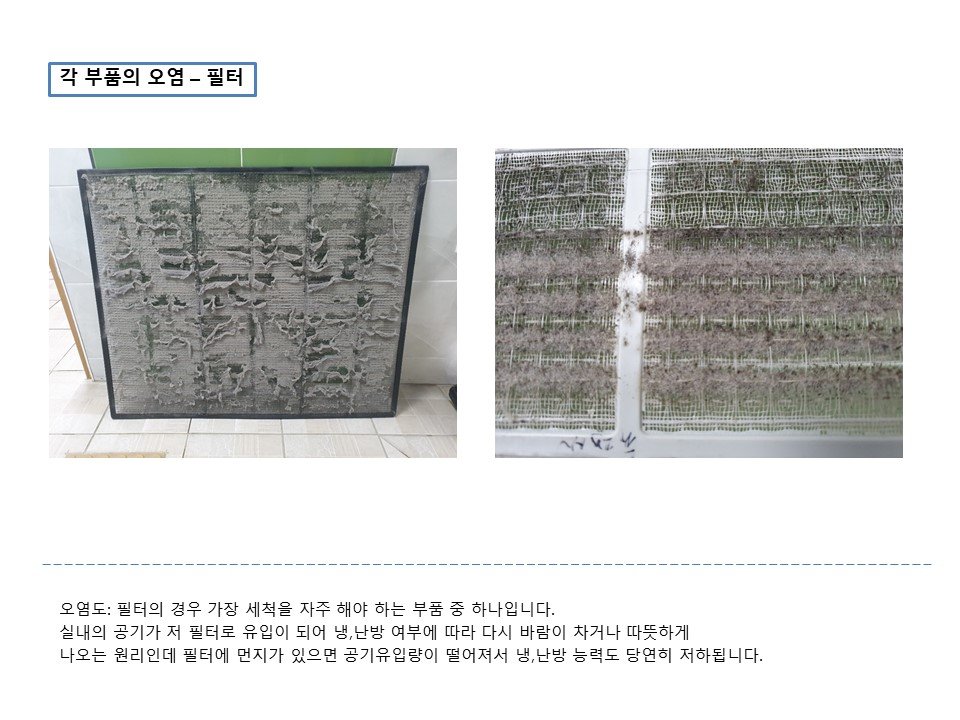 각 부품의 오염 – 필터
오염도: 필터의 경우 가장 세척을 자주 해야 하는 부품 중 하나입니다.
실내의 공기가 저 필터로 유입이 되어 냉,난방 여부에 따라 다시 바람이 차거나 따뜻하게
나오는 원리인데 필터에 먼지가 있으면 공기유입량이 떨어져서 냉,난방 능력도 당연히 저하됩니다.